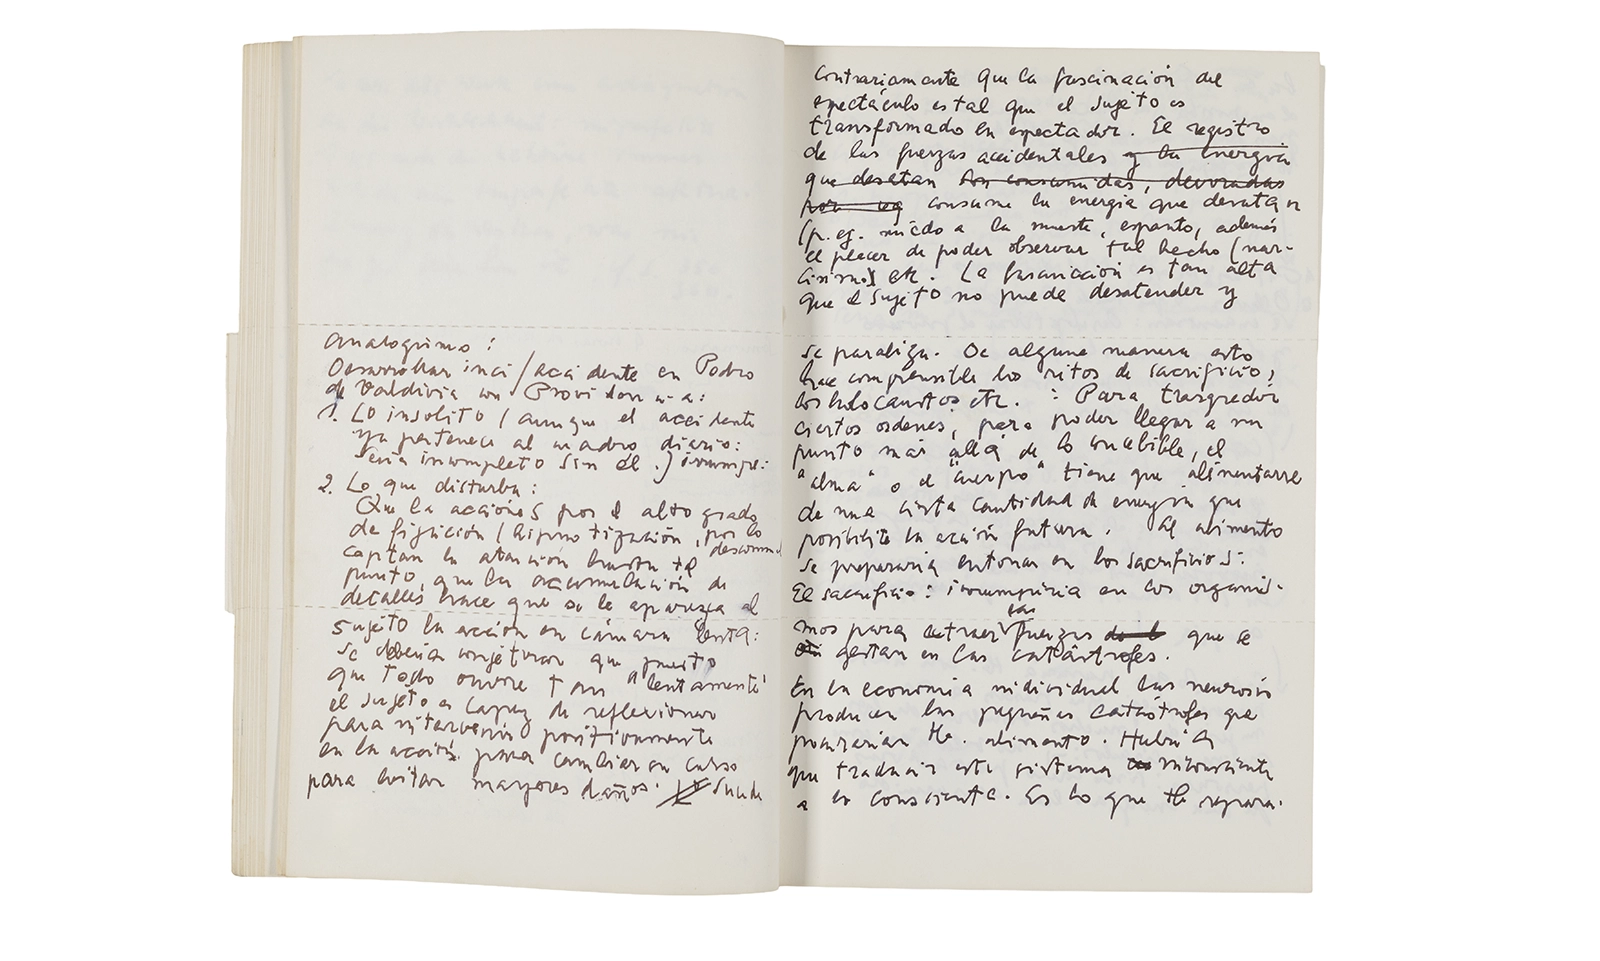 Analogismo:
Desarrollar inci/accidente en Pedro
de Valdivia con Providencia:
1. Lo insolito / aunque el accidente
ya pertenece al cuadro diario:
Sería incompleto sin él.) irrumpe:
2. Lo que disturba:
Que la acciones por el alto grado
de fijación / hipnotización, por lo
descomunal
captan la atención hasta tal
punto, que la accumulación de
detalles hace que se le aparezca al
sujeto la acción en cámara lenta:
se debería conjeturar que puesto
que todo ocurre tan "lentamente"
el sujeto es capaz de reflexionar
para intervenir positivamente
en la acción para cambiar su curso
para evitar mayores daños. Sucede
Contrariamente que la fascinación del
espectáculo es tal que el sujeto es
transformado en espectador. El registro
de las fuerzas accidentales y la energía
que desatan son consumidas, devoradas
por consume la energía que desatan
(p. ej. miedo a la muerte, espanto, además
el placer de poder observar tal hecho (nar-
cisismo) etc. La fascinación es tan alta
que el sujeto no puede desatender y
se paraliza. De alguna manera esto
hace comprensible los ritos de sacrificio,
los holocaustos etc. : Para trasgredir
ciertos ordenes, para poder llegar a un
punto más allá de lo concebible, el
"alma" o el "cuerpo" tiene que alimentarse
de una cierta cantidad de energía que
posibilite la acción futura. Al alimento
se prepararia entonces en los sacrificios:
El sacrificio: irrumpiria en los organis-
mos para extraer las fuerzas que se
gestan en las catástrofes.
En la economía individual las neurosis
producen las pequeñas catástrofes que
alimento. Habría
que traducir este sistema inconsciente
a lo consciente. Es lo que repara.